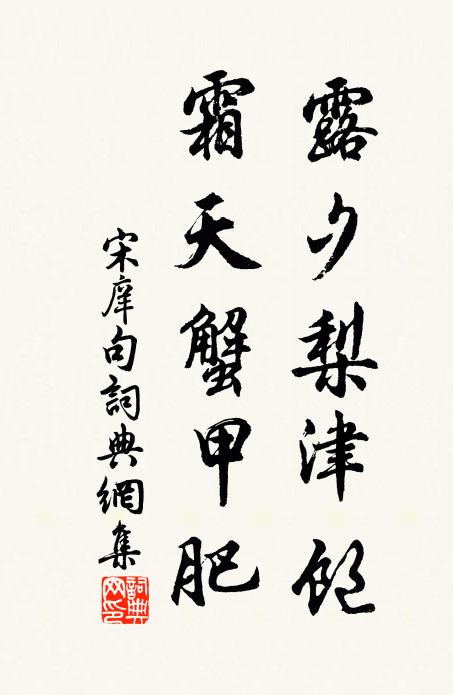 露夕梨津飽
霜天蟹甲肥
宋庠句詞典網集
詞典网印